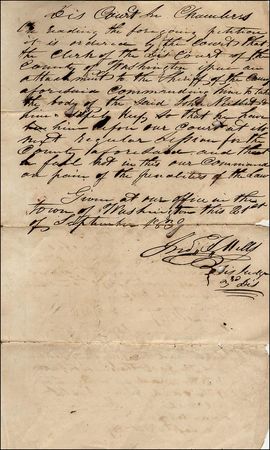 Dis Court In Chambers
On reading the foregoing petition
it is ordered by the Court that
the Clerk of the Dis Court of the
County of Washington issue an
attachment to the Sheriff of the County
aforesaid Commanding him to take
the body of the said John
him safely keep so that he have
him before our Court at its
next Regular Term for the
County aforesaid and that
he fail not in this our Command
on pain of the penalties of the law
Given at our office in the
Town of Washington this 21st
of September 1839
Mills
Dis Judge
3rd Dis